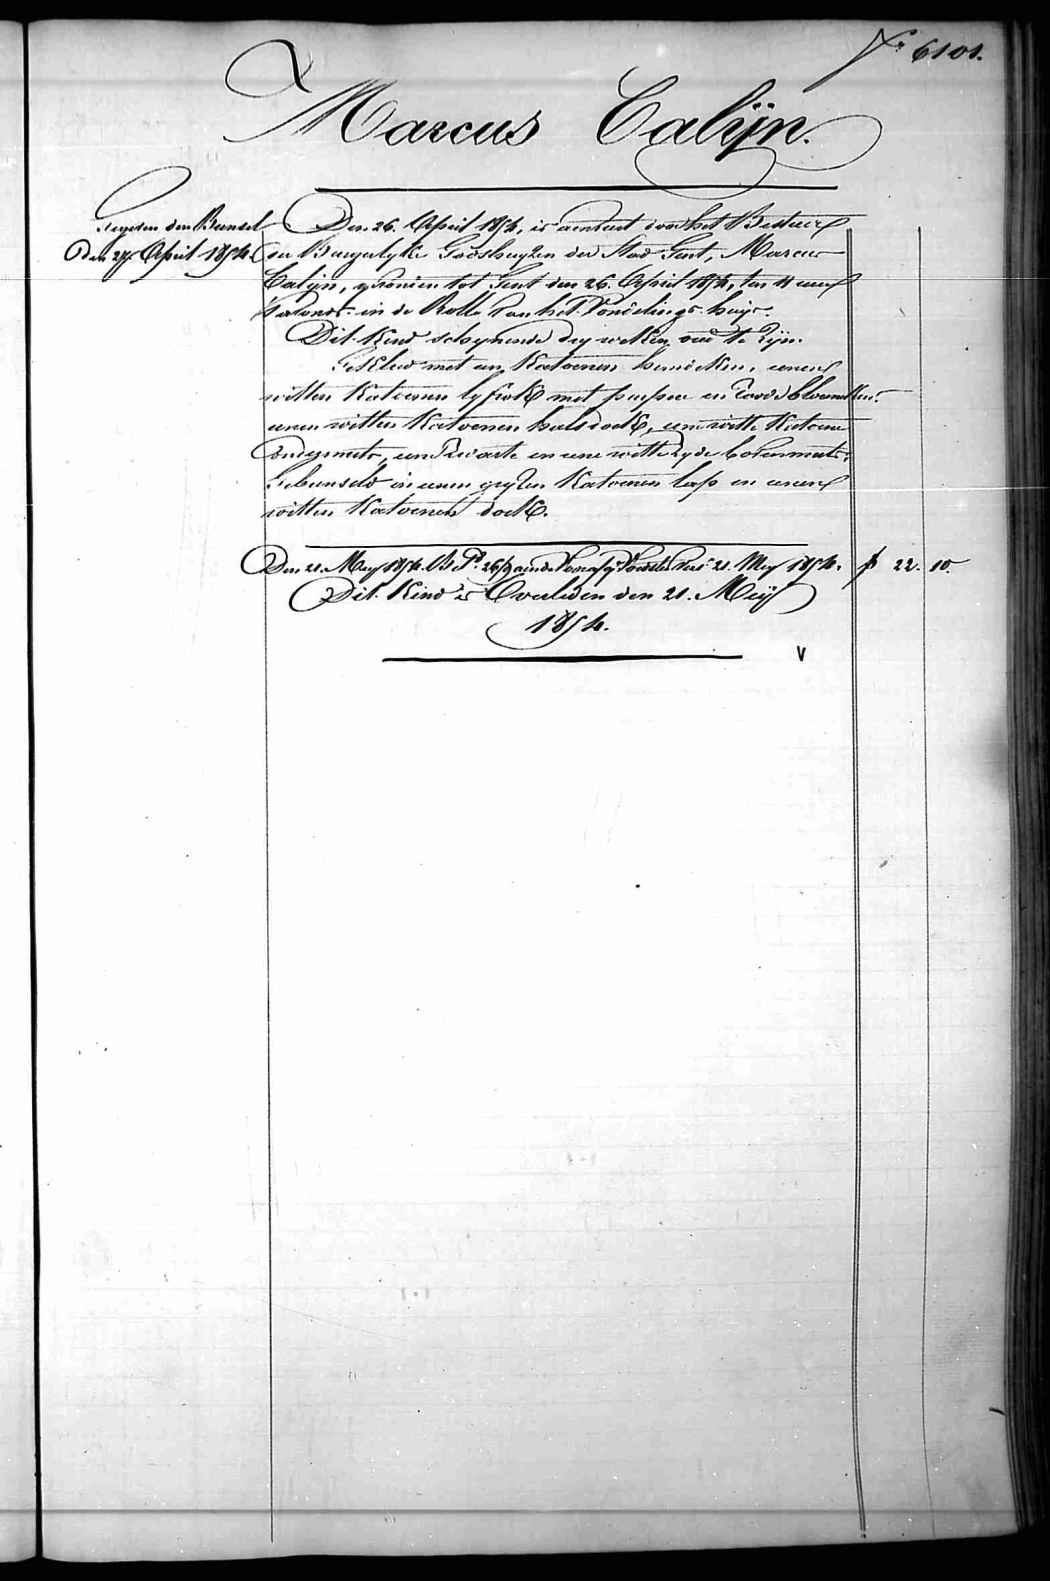 N° 6101.
Marcus Calijn.
Gegeven den Bunsel
Den 27. April 1854.
Den 26. April 1854, is aenveerd door het Bestuer
der Burgerlyke Godshuyzen der Stad Gent, Marcus
Calijn, gevonden tot Gent den 26. April 1854, ten 11 uren
's avonds in de Rolle van het Vondelings-huys.
Dit Kind schynende dry weken oud te zyn.
Gekleed met een Katoenen hemdeken, eenen
witten Katoenen lyfrok met purper en roode bloemekens,
eenen witten Katoenen halsdoek, eene witte Katoene
ondermuts, een zwarte en eene witte zyde bovenmuts,
Gebunseld in eenen gryzen Katoenen lap en eenen
witten Katoenen doek.
Den 21. Mey 1854. B P. 26/9 aen de 21. Mey 1854. f 22. 10.
Dit Kind is Overleden den 21. Meij
1854.
V